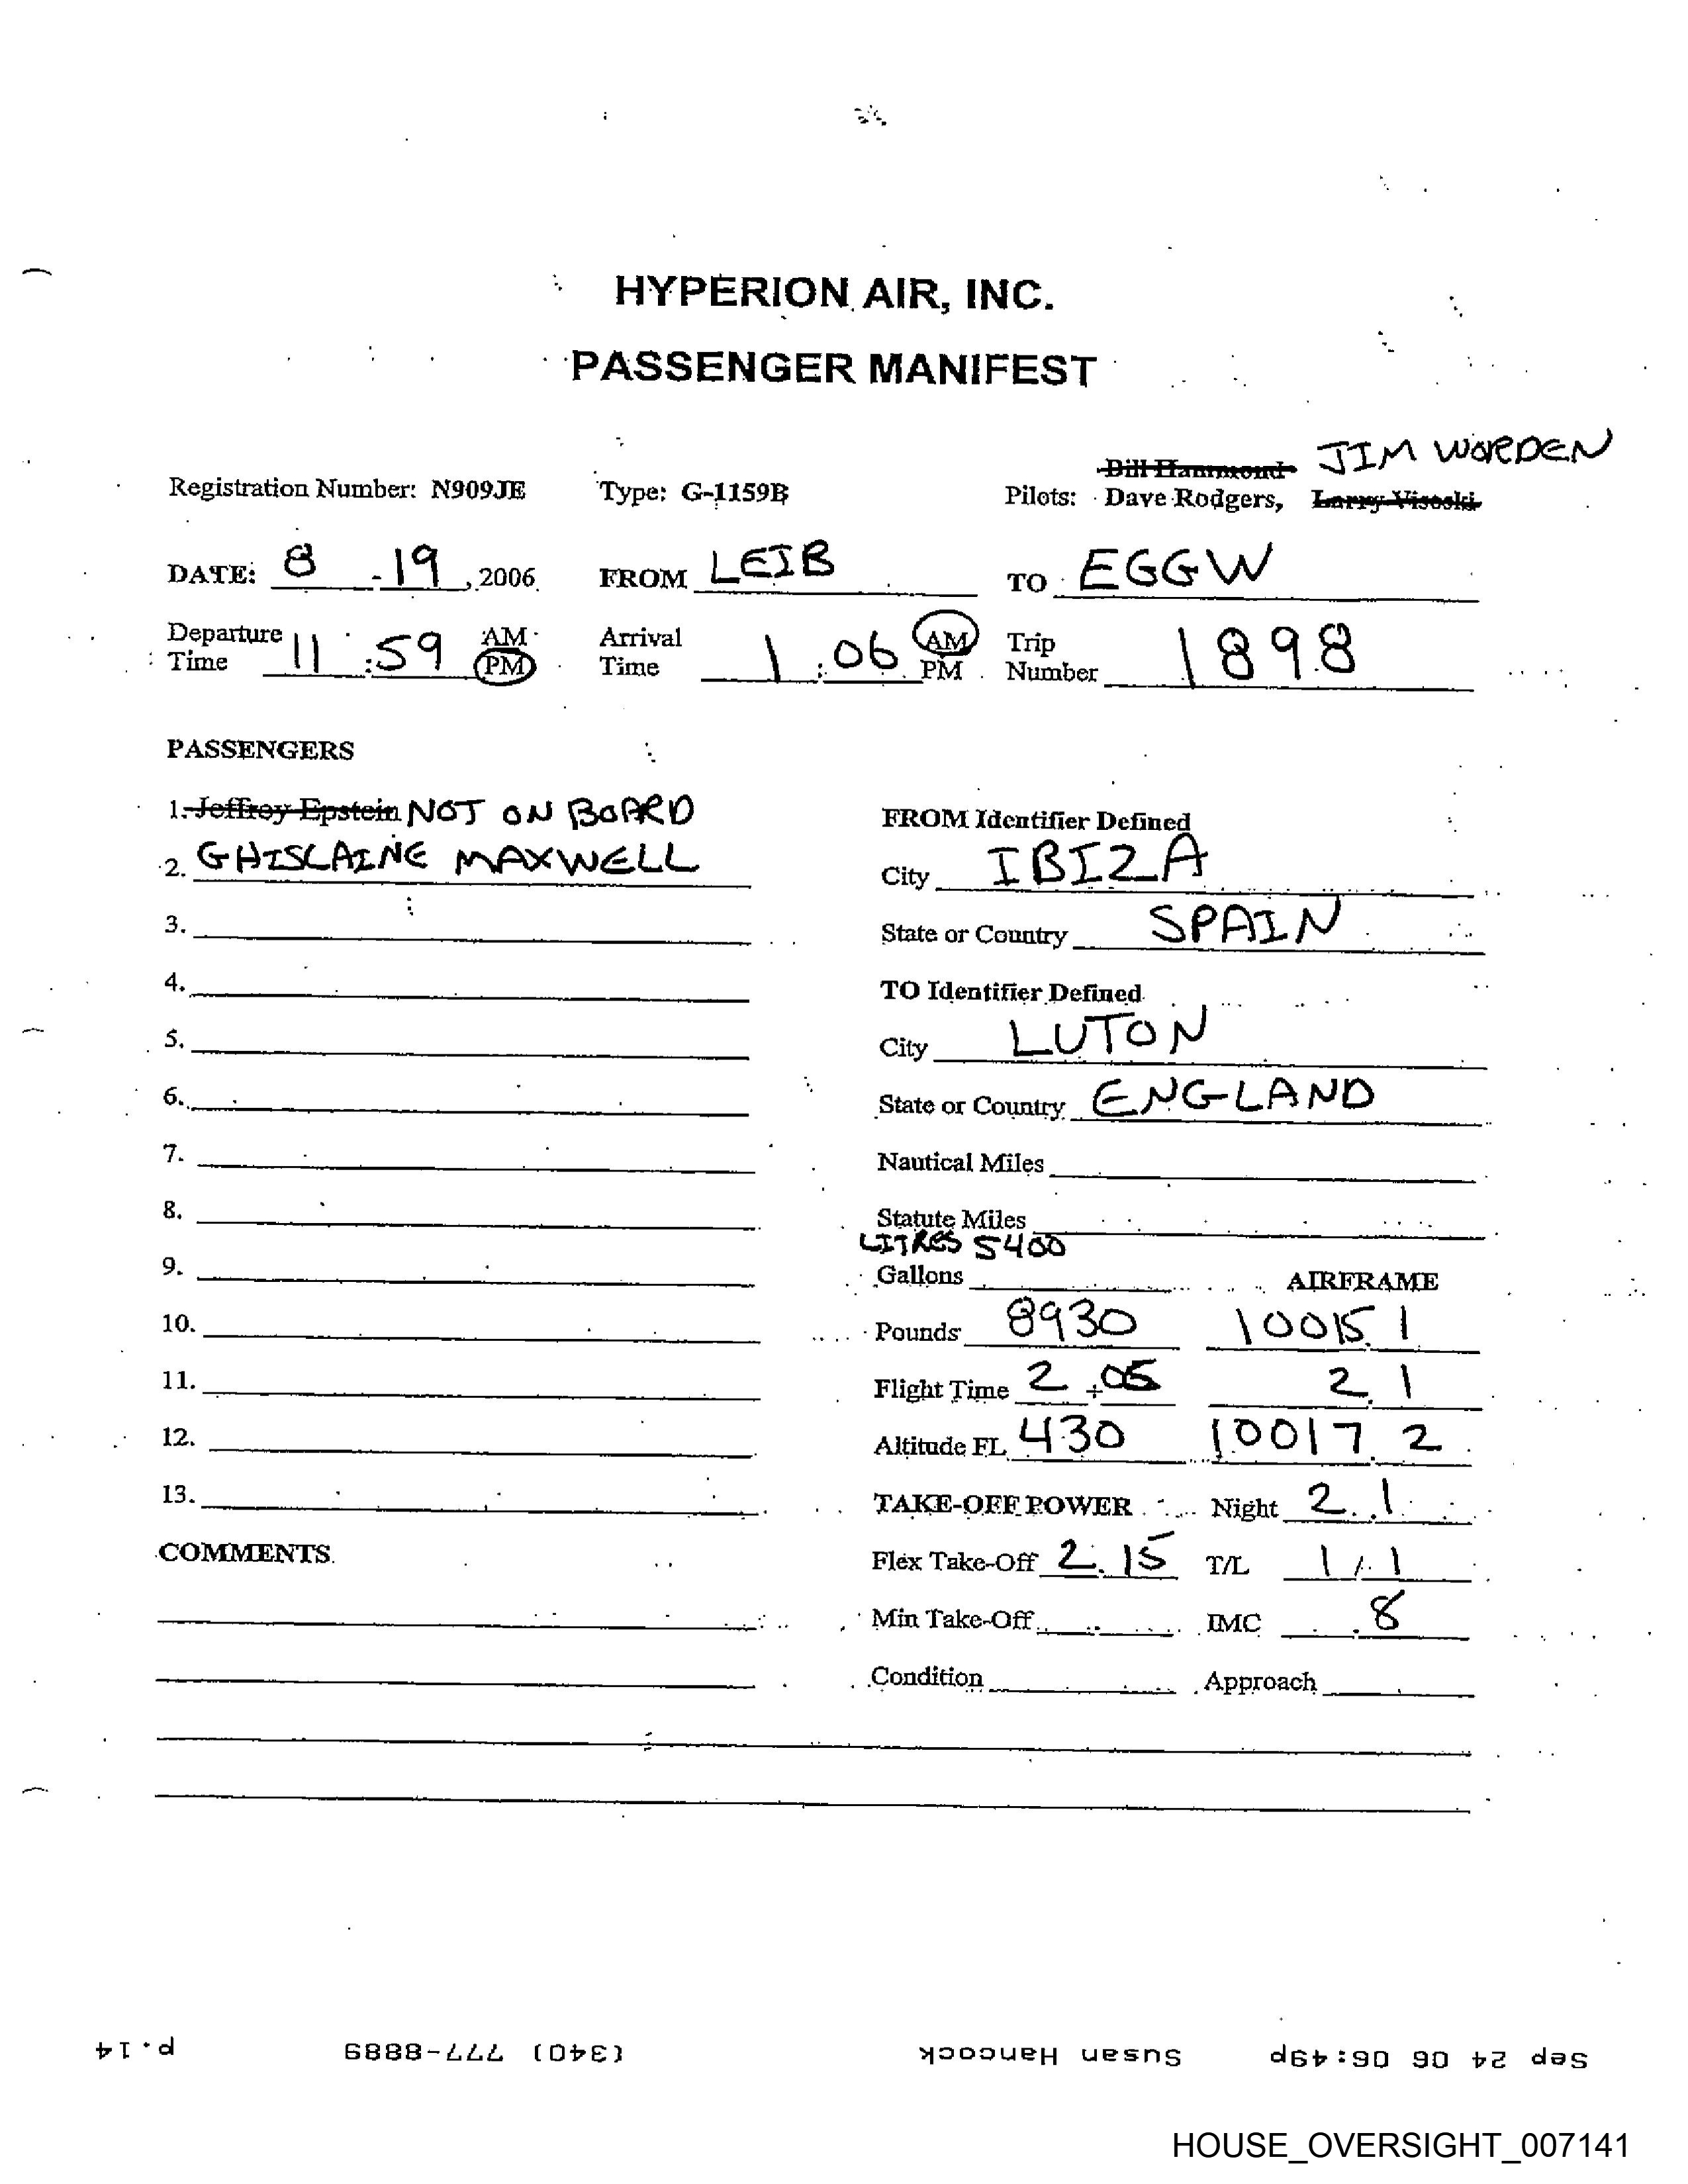 HYPERION AIR, INC.
PASSENGER MANIFEST
Bill Hammond JIM WORDEN
Registration Number: N909JE Type: G-1159B Pilots: Dave Rodgers, Larry Visoski
DATE: 8 - 19, 2006 FROM LEIB TO EGGW
Departure Time 11:59 AM PM Arrival Time 1:06 AM PM Trip Number 1898
PASSENGERS
1. Jeffrey Epstein NOT ON BOARD
2. GHISLAINE MAXWELL
3.
4.
5.
6.
7.
8.
9.
10.
11.
12.
13.
COMMENTS
FROM Identifier Defined
City IBIZA
State or Country SPAIN
TO Identifier Defined
City LUTON
State or Country ENGLAND
Nautical Miles
Statute Miles
LITRES 5400
Gallons AIRFRAME
Pounds 8930 10015.1
Flight Time 2+05 2.1
Altitude FL 430 10017.2
TAKE-OFF POWER Night 2.1
Flex Take-Off 2.15 T/L 1/1
Min Take-Off IMC .8
Condition Approach
Sep 24 06 06:49p Susan Hancock (340) 777-8889 p.14
HOUSE_OVERSIGHT_007141